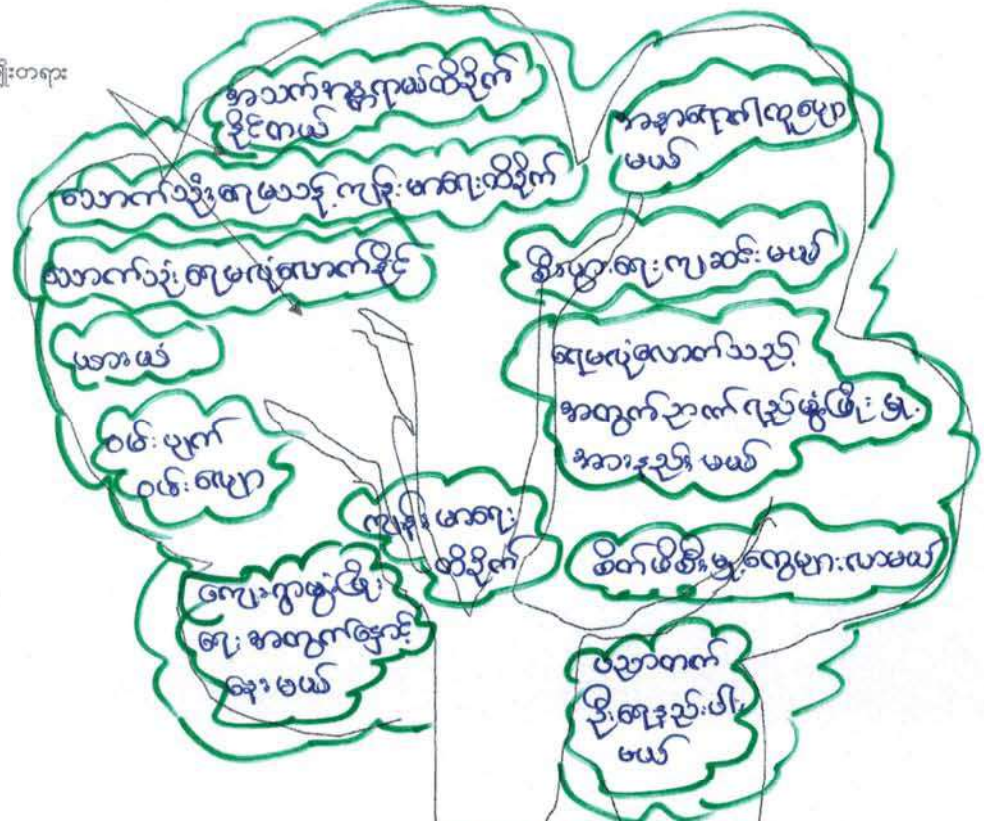 ိုးတရား
အသက်အန္တရာယ်ထိခိုက်
နိုင်တယ်
သောက်သုံးရေမသန့်ကျန်းမာရေးထိခိုက်
သောက်သုံးရေမလုံလောက်နိုင်
ယားယံ
ဝမ်းပျက်
ဝမ်းလျော
ကျန်းမာရေး
ထိခိုက်
ကျေးရွာဖွံ့ဖြိုး
ရေးအတွက်နှောင့်
နှေးမယ်
အနာရောဂါထူပြော
မယ်
စီးပွားရေးကျဆင်းမယ်
ရေမလုံလောက်သည့်
အတွက်ဉာဏ်ရည်ဖွံ့ဖြိုးမှု
အားနည်းမယ်
စိတ်ဖိစီးမှုတွေများလာမယ်
ပညာတတ်
ဦးရေနည်းပါး
မယ်